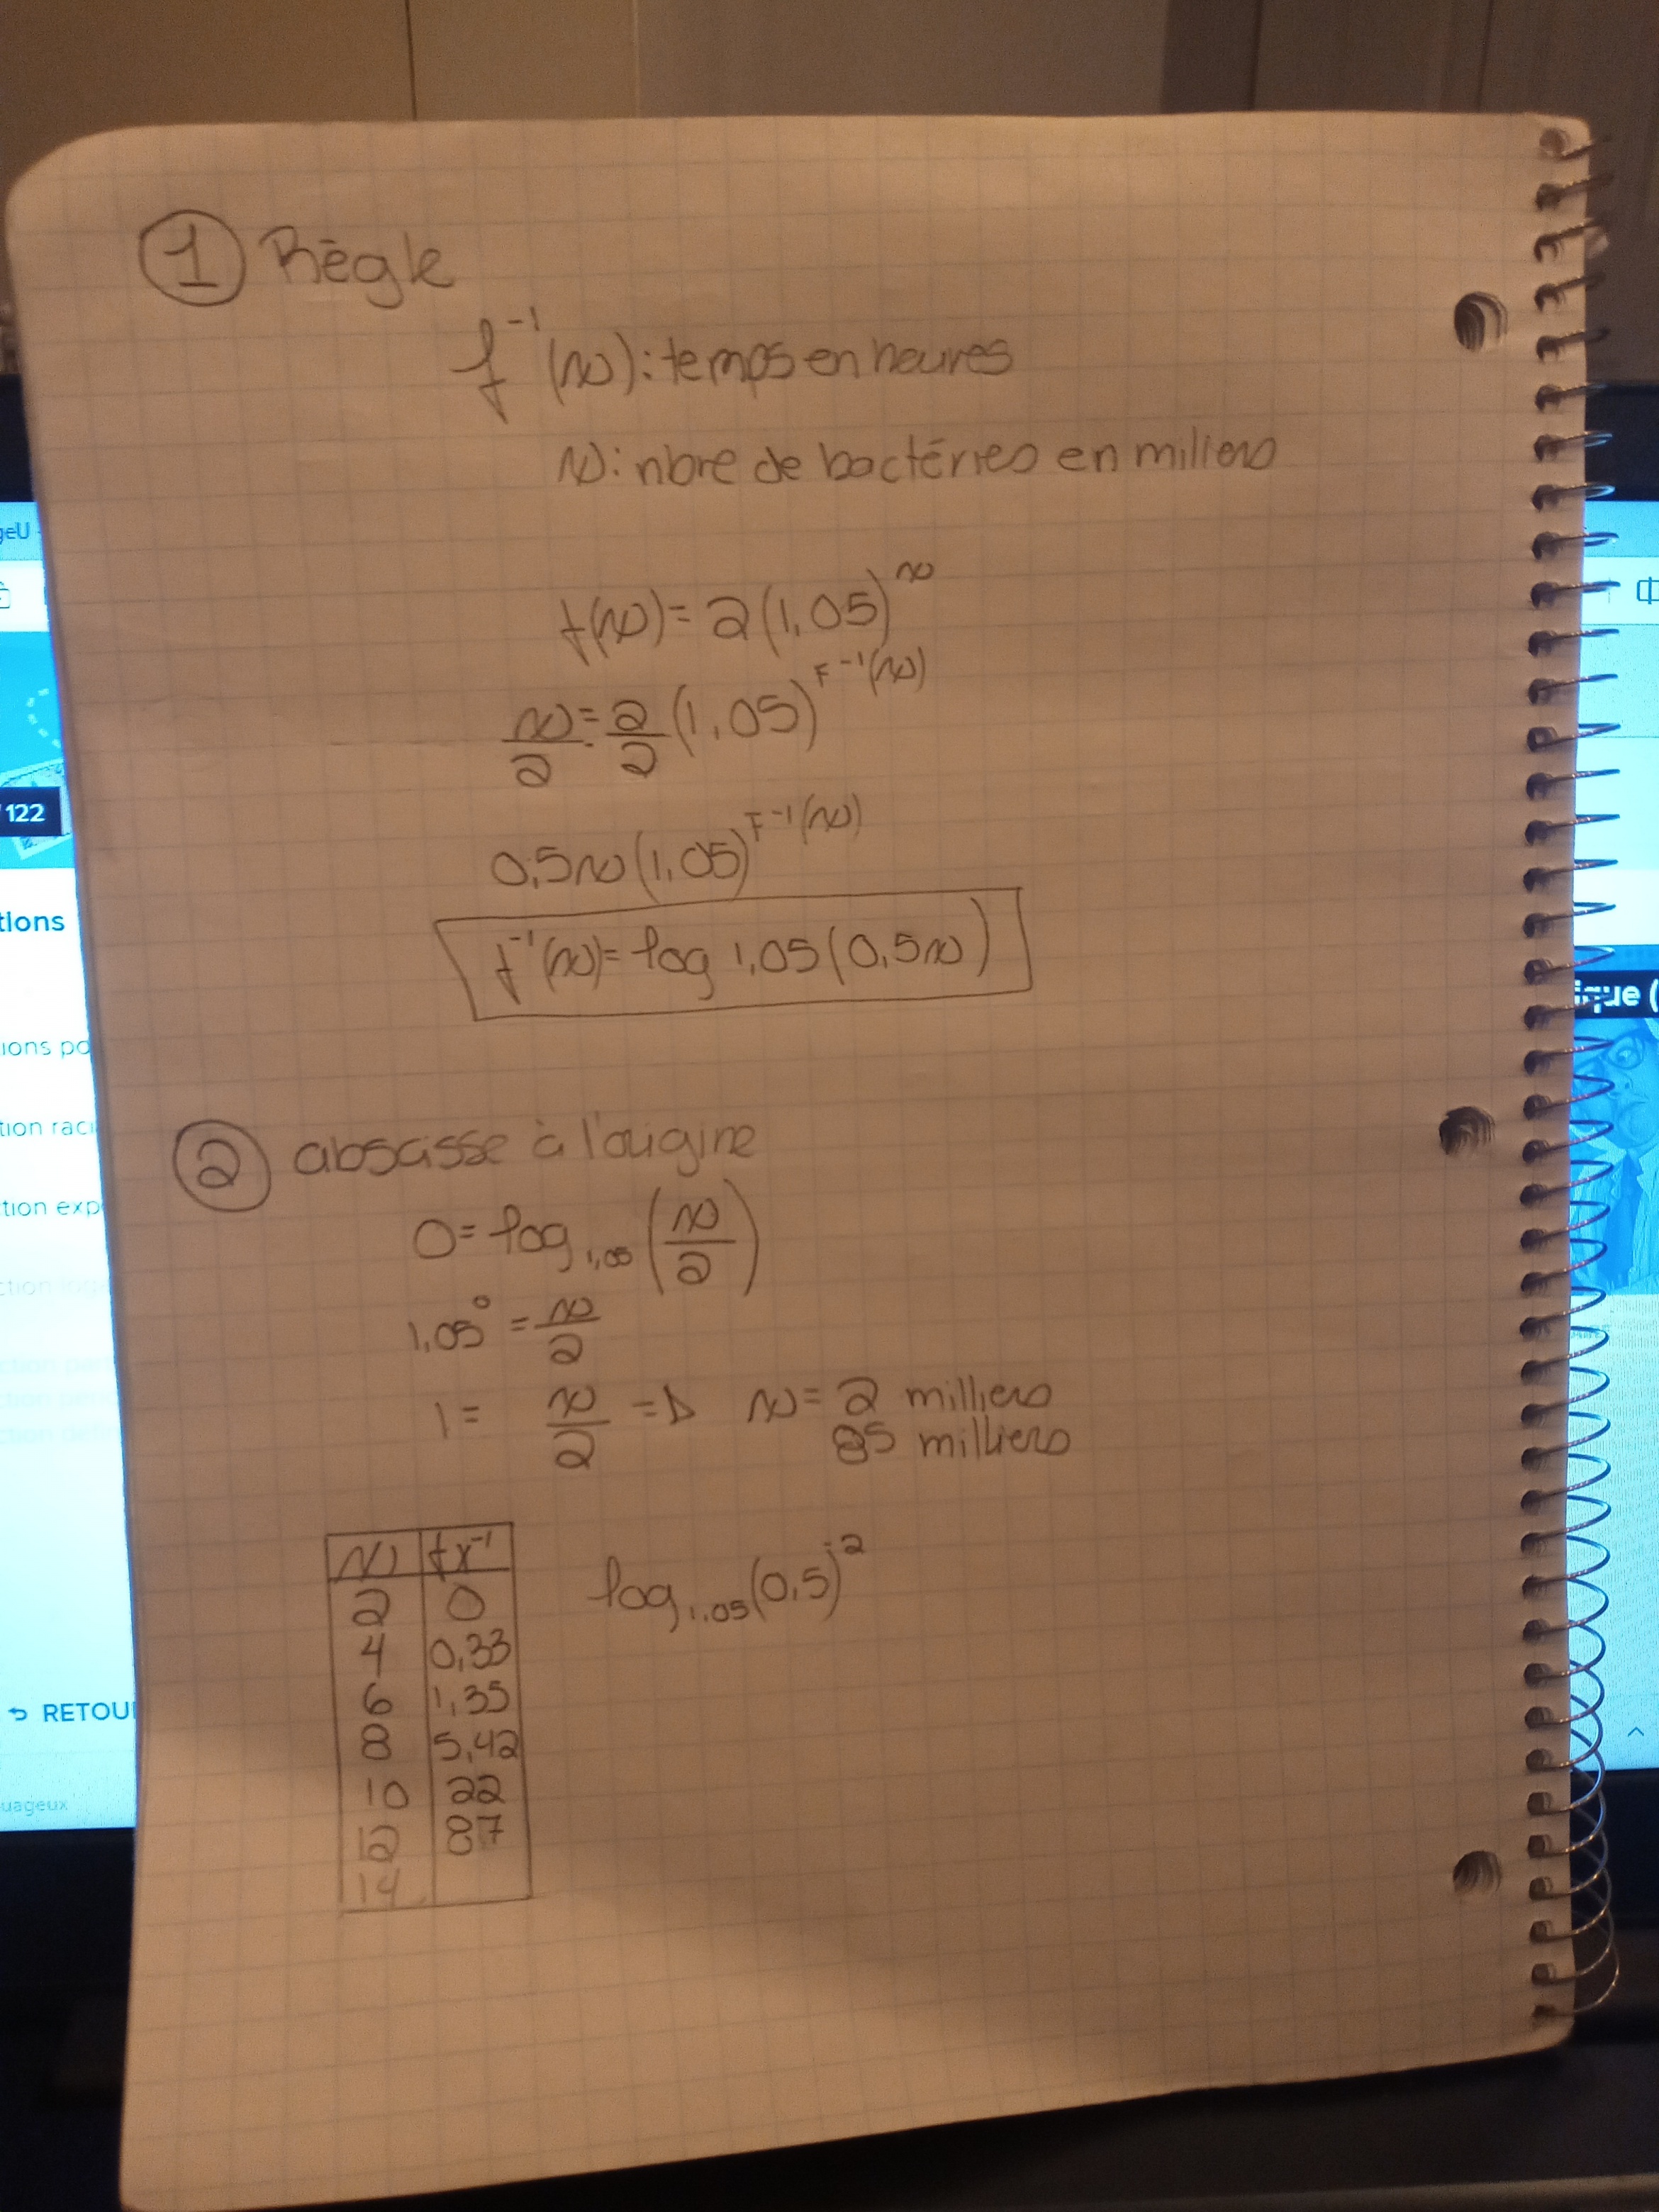 ① Règle
f⁻¹(x): temps en heures
x: nbre de bactéries en milliers
f(x) = 2(1,05)ˣ
x/2 = 2/2 (1,05)^F⁻¹(x)
0,5x(1,05)^F⁻¹(x)
f⁻¹(x) = log 1,05(0,5x)
② abscisse à l'origine
0 = log₁,₀₅ (x/2)
1,05⁰ = x/2
1 = x/2 => x = 2 milliers
85 milliers
x fx⁻¹
2 0
4 0,33
6 1,35
8 5,42
10 22
12 87
14
log₁,₀₅(0,5)⁻²
geU
122
tions
ions po
tion raci
tion exp
RETOU
uageux
ique (